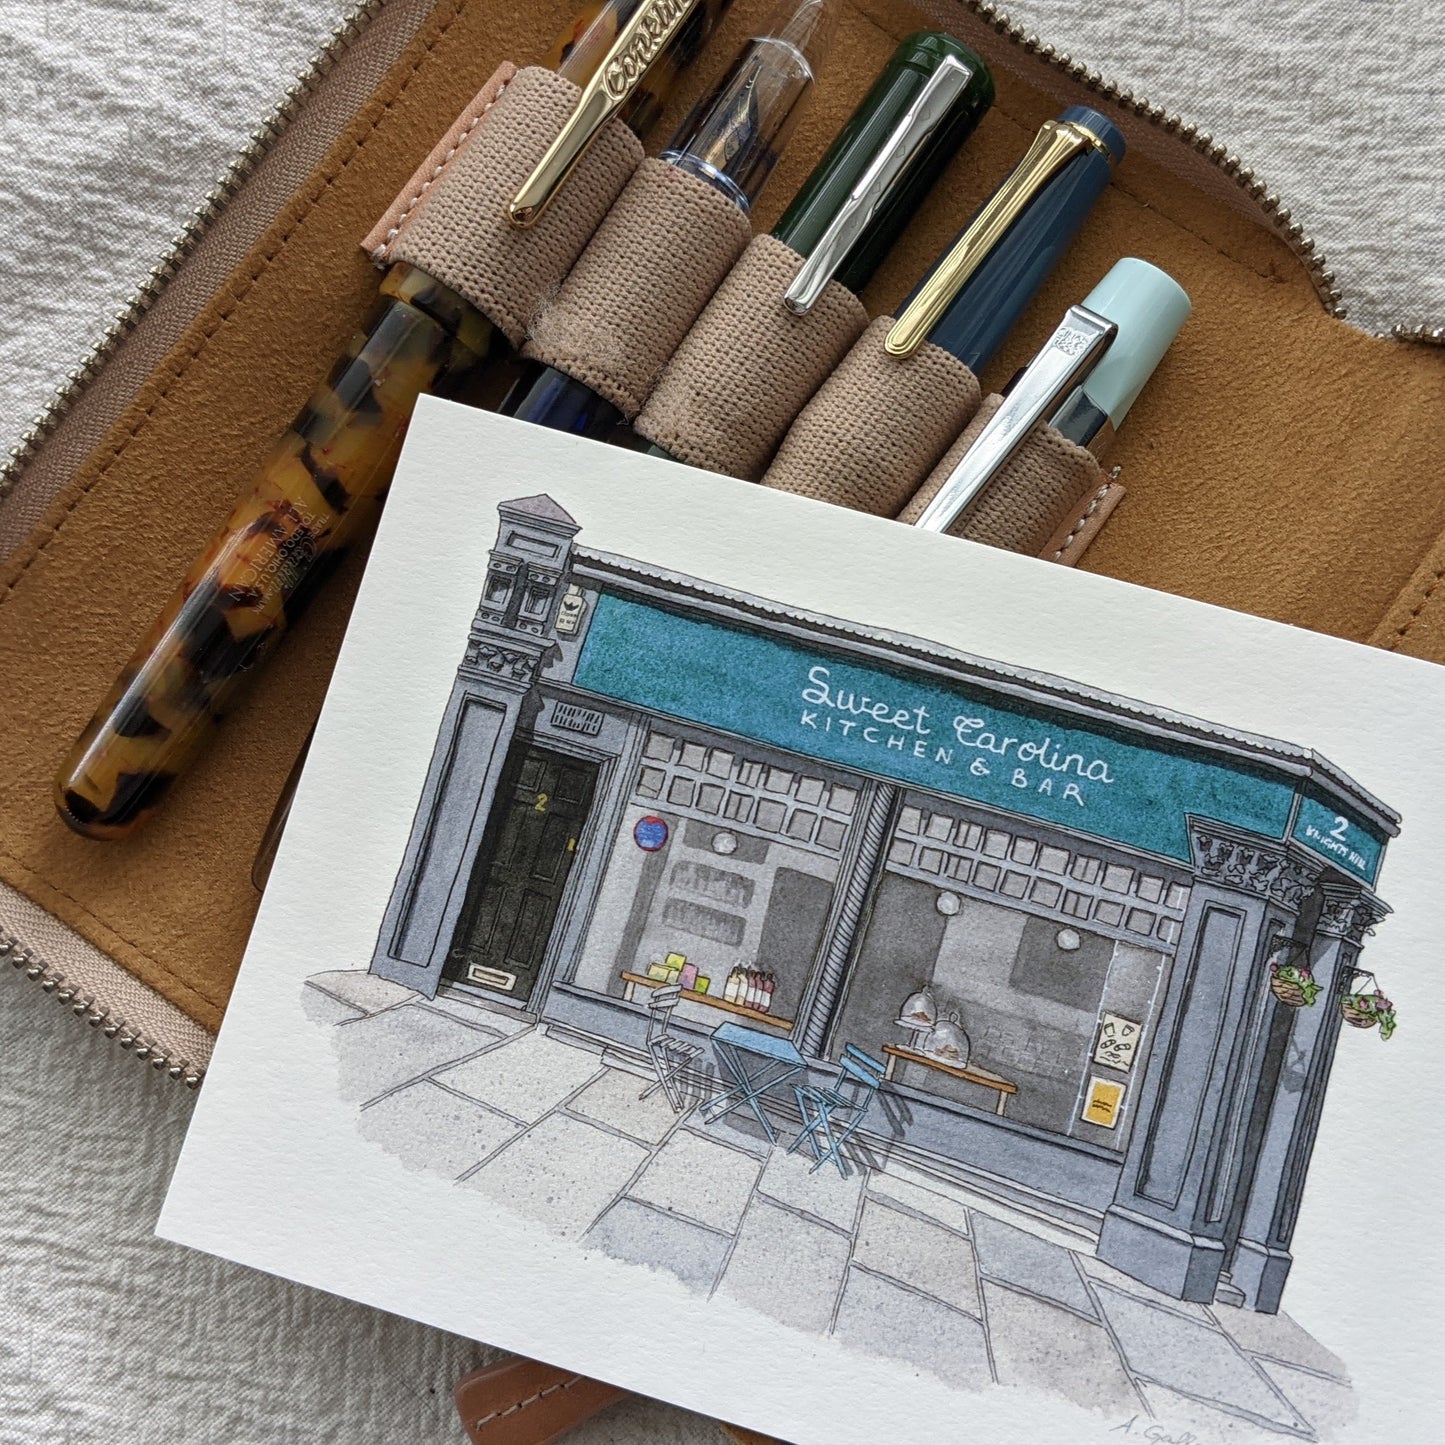 Conklin
Sweet Carolina
KITCHEN & BAR
2
KNIGHTS HILL
2
A. Gall